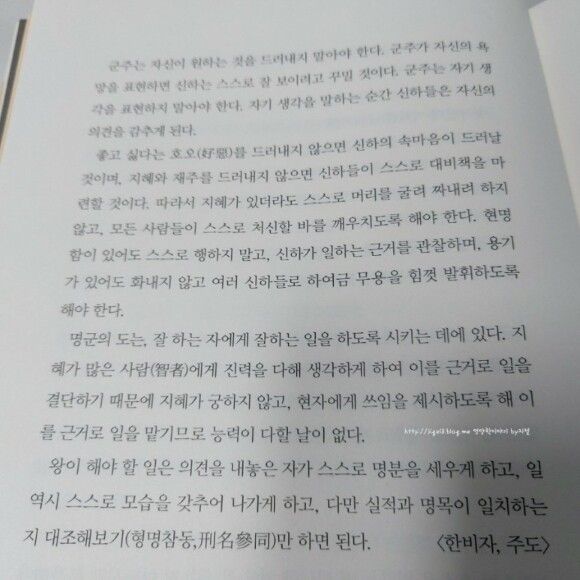 군주는 자신이 원하는 것을 드러내지 말아야 한다. 군주가 자신의 욕
망을 표현하면 신하는 스스로 잘 보이려고 꾸밀 것이다. 군주는 자기 생
각을 표현하지 말아야 한다. 자기 생각을 말하는 순간 신하들은 자신의
의견을 감추게 된다.
좋고 싫다는 호오(好惡)를 드러내지 않으면 신하의 속마음이 드러날
것이며, 지혜와 재주를 드러내지 않으면 신하들이 스스로 대비책을 마
련할 것이다. 따라서 지혜가 있더라도 스스로 머리를 굴려 짜내려 하지
않고, 모든 사람들이 스스로 처신할 바를 깨우치도록 해야 한다. 현명
함이 있어도 스스로 행하지 말고, 신하가 일하는 근거를 관찰하며, 용기
가 있어도 화내지 않고 여러 신하들로 하여금 무용을 힘껏 발휘하도록
해야 한다.
명군의 도는, 잘 하는 자에게 잘하는 일을 하도록 시키는 데에 있다. 지
혜가 많은 사람(智者)에게 진력을 다해 생각하게 하여 이를 근거로 일을
결단하기 때문에 지혜가 궁하지 않고, 현자에게 쓰임을 제시하도록 해 이
를 근거로 일을 맡기므로 능력이 다할 날이 없다.
왕이 해야 할 일은 의견을 내놓은 자가 스스로 명분을 세우게 하고, 일
역시 스스로 모습을 갖추어 나가게 하고, 다만 실적과 명목이 일치하는
지 대조해보기(형명참동,刑名參同)만 하면 된다. 〈한비자, 주도〉